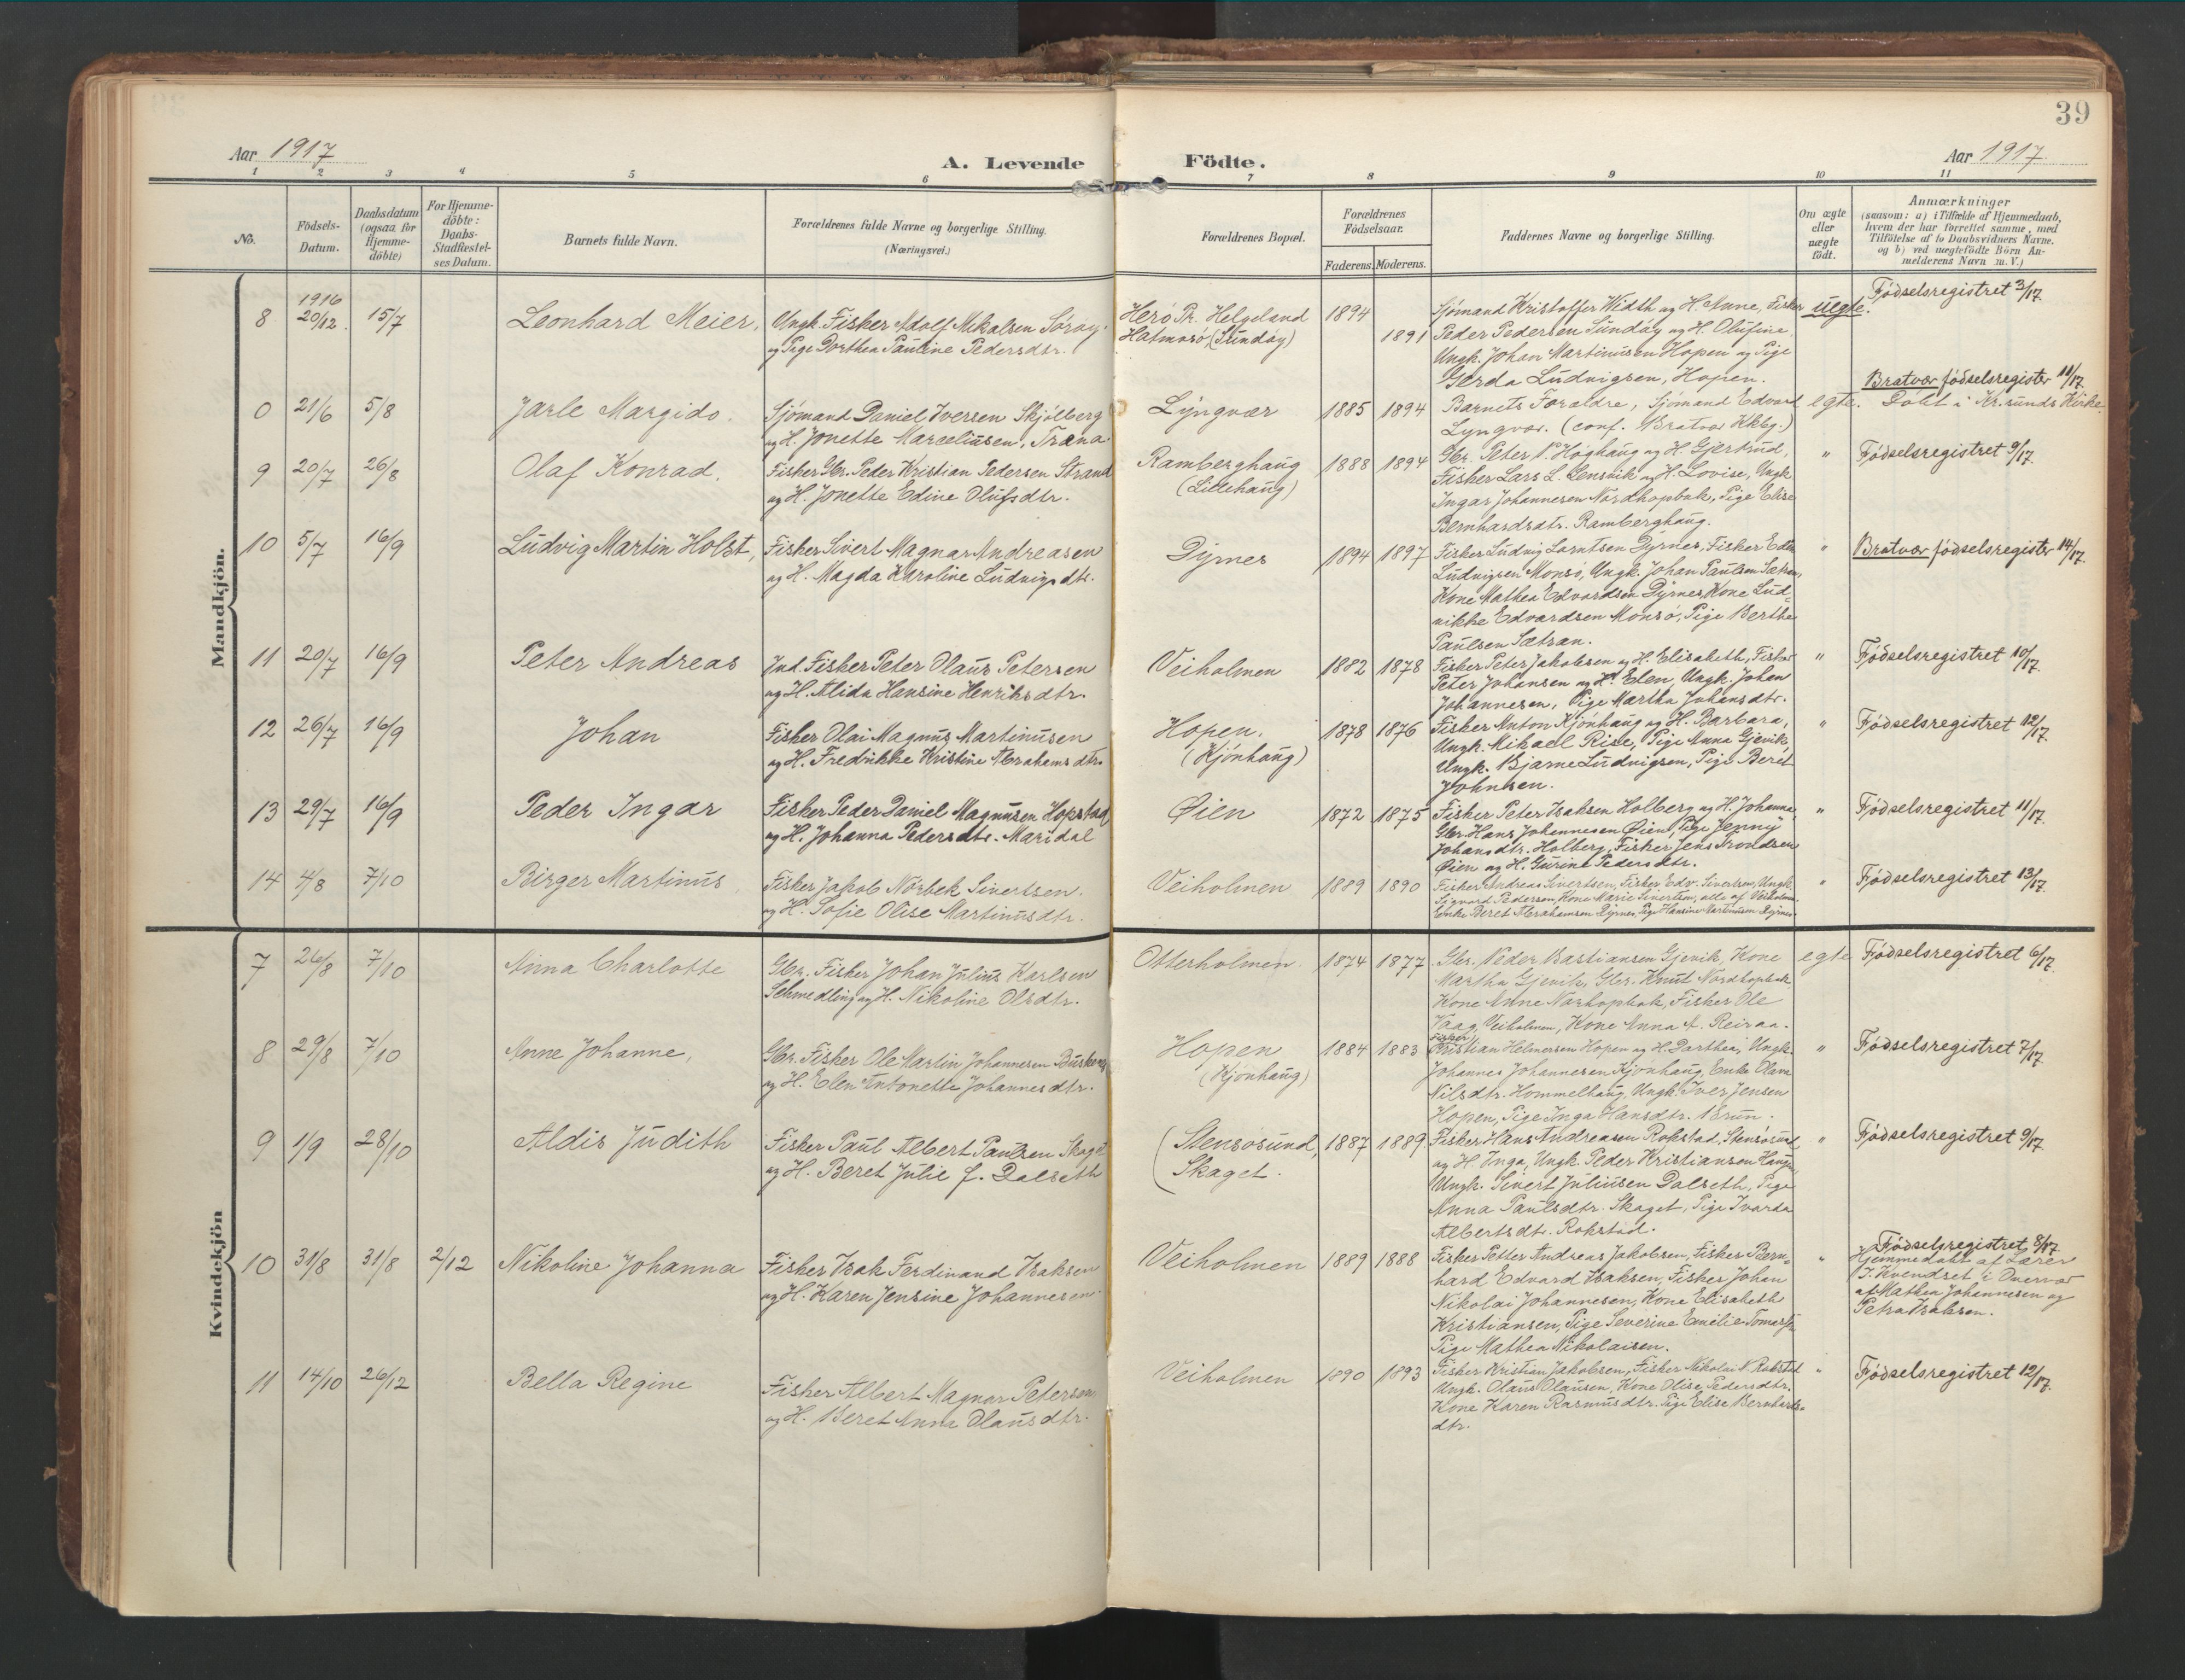 39
Aar 1917
A. Levende Födte.
Aar 1917
1 2 3 4 5 6 7 8 9 10 11
No.
Födsels-
Datum.
Daabsdatum
(ogsaa for
Hjemme-
döbte)
For Hjemme-
döbte:
Daabs-
Stadfæstel-
ses Datum.
Barnets fulde Navn.
Forældrenes fulde Navne og borgerlige Stilling.
(Næringsvei.)
Forældrenes Bopæl.
Forældrenes
Födselsaar.
Faderens. Moderens.
Faddernes Navne og borgerlige Stilling.
Om ægte
eller
uægte
födt.
Anmærkninger
(saasom: a) i Tilfælde af Hjemmedaab,
hvem der har forrettet samme, med
Tilföielse af to Daabsvidners Navne.
og b) ved uægtefödte Börn An-
melderens Navn m. V.)
Mandkjön.
8 1916 20/12. 15/7 Leonhard Meier,
Ungk. Fisker Adolf Mikalsen Söröy.
og Pige Dorthea Pauline Pedersdtr.
Herö Pr. Helgeland
Hatmosö, (Sundöy)
1894 1891
Sjömand Kristoffer Width og H. Anne, Fisker
Peder Pedersen Sundöy og H. Olufine,
Ungk. Johan Martinusen Hopen og Pige
Gerda Ludvigsen, Hopen.
uegte.
Födselsregistret 3/17.
0 21/6 5/8 Jarle Margido.
Sjömand Daniel Iversen Skjölberg
og H. Jonette Marceliusen, Træna
Lyngvær 1885 1894
Barnets Forældre, Sjömand Edvard
Lyngvær. (conf. Bratvær Kkbg.)
egte.
Bratvær födselsregister 11/17.
Döbt i Kr.sunds Kirke.
9 20/7 26/8 Olaf Konrad.
Fisker Gbr. Peder Kristian Pedersen Strand
og H. Jonette Edine Olufsdtr.
Ramberghaug
(Lillehaug)
1888 1894
Gbr. Peter P. Höghaug og H. Gjertrud,
Fisker Lars L. Lensvik og H. Lovise, Ungk.
Ingar Johannesen Nordhopbuk, Pige Elise
Bernhardsdtr. Ramberghaug.
" Födselsregistret 9/17.
10 5/7 16/9 Ludvig Martin Holst,
Fisker Sivert Magnar Andreasen
og H. Magda Karoline Ludvigsdtr.
Dyrnes 1894 1897
Fisker Ludvig Larntsen Dyrnes, Fisker Edv.
Ludvigsen Monsö, Ungk. Johan Paulsen Sætran,
Kone Mathea Edvardsen Dyrnes, Kone Lud-
vikke Edvardsen Monsö, Pige Berthe
Paulsen Sætran.
" Bratvær födselsregister 14/17.
11 20/7 16/9 Peter Andreas
Ind. Fisker Peter Olaus Petersen
og H. Alida Hansine Henriksdtr.
Veiholmen 1882 1878
Fisker Peter Jakobsen og H. Elisabeth, Fisker
Peter Johansen og H. Elen, Ungk. Johan
Johannesen, Pige Martha Johansdtr.
" Födselsregistret 10/17.
12 26/7 16/9 Johan
Fisker Olai Magnus Martinusen
og H. Fredrikke Kristine Abrahamsdtr.
Hopen.
(Kjönhaug)
1878 1876
Fisker Anton Kjönhaug og H. Barbara,
Ungk. Mikael Risle, Pige Anna Gjevik,
Ungk. Bjarne Ludvigsen, Pige Beret
Johnsen.
" Födselsregistret 12/17.
13 29/7 16/9 Peder Ingar
Fisker Peder Daniel Magnusen Hopstad
og H. Johanna Pedersdtr. Maridal
Øien 1872 1875
Fisker Peter Isaksen Holberg og H. Johanna,
Gbr. Hans Johannesen Øien, Pige Jenny
Johansdtr. Holberg, Fisker Jens Trondsen
Øien og H. Gurine Pedersdtr.
" Födselsregistret 11/17.
14 4/8 7/10 Birger Martinus
Fisker Jakob Norbek Sivertsen.
og H. Sofie Olise Martinusdtr.
Veiholmen 1889 1890
Fisker Andreas Sivertsen, Fisker Edv. Sivertsen, Ungk.
Sigvard Pedersen, Kone Marie Sivertsen, alle af Veiholmen,
Enke Beret Abrahamsen Dyrnes, Pige Hansine Martinusen Dyrnes
" Födselsregistret 13/17.
Kvindekjön
7 26/8 7/10 Anna Charlotte
Gbr. Fisker Johan Julius Karlsen
Schmedling og H. Nikoline Olsdtr.
Otterholmen. 1874 1877
Gbr. Peder Bastiansen Gjevik, Kone
Martha Gjevik, Gbr. Knut Nordhopbuk
Kone Anne Norhopbak, Fisker Ole
Vaag, Veiholmen, Kone Anna A. Reiraa.
egte Födselsregistret 6/17.
8 29/8 7/10 Anne Johanne,
Gbr. Fisker Ole Martin Johannesen
og H. Elen Antonette Johannesdtr.
Hopen
(Kjönhaug)
1884 1883
Fisker Kristian Helmersen Hopen og H. Darthea, Ungk.
Johannes Johannesen Kjönhaug, Enke Olava
Nilsdtr. Hommelhaug, Ungk. Iver Jensen
Hopen, Pige Inga Hansdtr. Brun.
" Födselsregistret 7/17
9 1/9 28/10 Aldis Judith
Fisker Paul Albert Paulsen Skaget
og H. Beret Julie f. Dalseth
(Stensösund,
Skaget.
1887 1889.
Fisker Hans Andreasen Rokstad, Stensösund
og H. Inga, Ungk. Peder Kristiansen Haugen
Ungk. Sivert Juliusen Dalseth, Pige
Anna Paulsdtr. Skaget, Pige Ivarda
Albertsdtr. Rokstad.
" Födselsregistret 9/17.
10 31/8 31/8 2/12 Nikoline Johanna
Fisker Isak Ferdinand Isaksen
og H. Karen Jensine Johannesen
Veiholmen 1889 1888
Fisker Petter Andreas Jakobsen, Fisker Bern-
hard Edvard Isaksen, Fisker Johan
Nikolai Johannesen, Kone Elisabeth
Kristiansen, Pige Severine Emelie
Pige Mathea Nikolaisen.
" Födselsregistret 8/17
Hjemmedöbt af Lærer
I. Kvendset i Overvær
af Mathea Johannesen og
Petra Isaksen.
11 14/10 26/12 Bella Regine
Fisker Albert Magnar Petersen
og H. Beret Anna Olausdtr.
Veiholmen 1890 1893
Fisker Kristian Jakobsen, Fisker Nikolai N. Rokstad
Ungk. Olaus Olausen, Kone Olise Pedersdtr.
Kone Karen Rasmusdtr. Pige Elise Bernhards-
dtr.
" Födselsregistret 12/17.